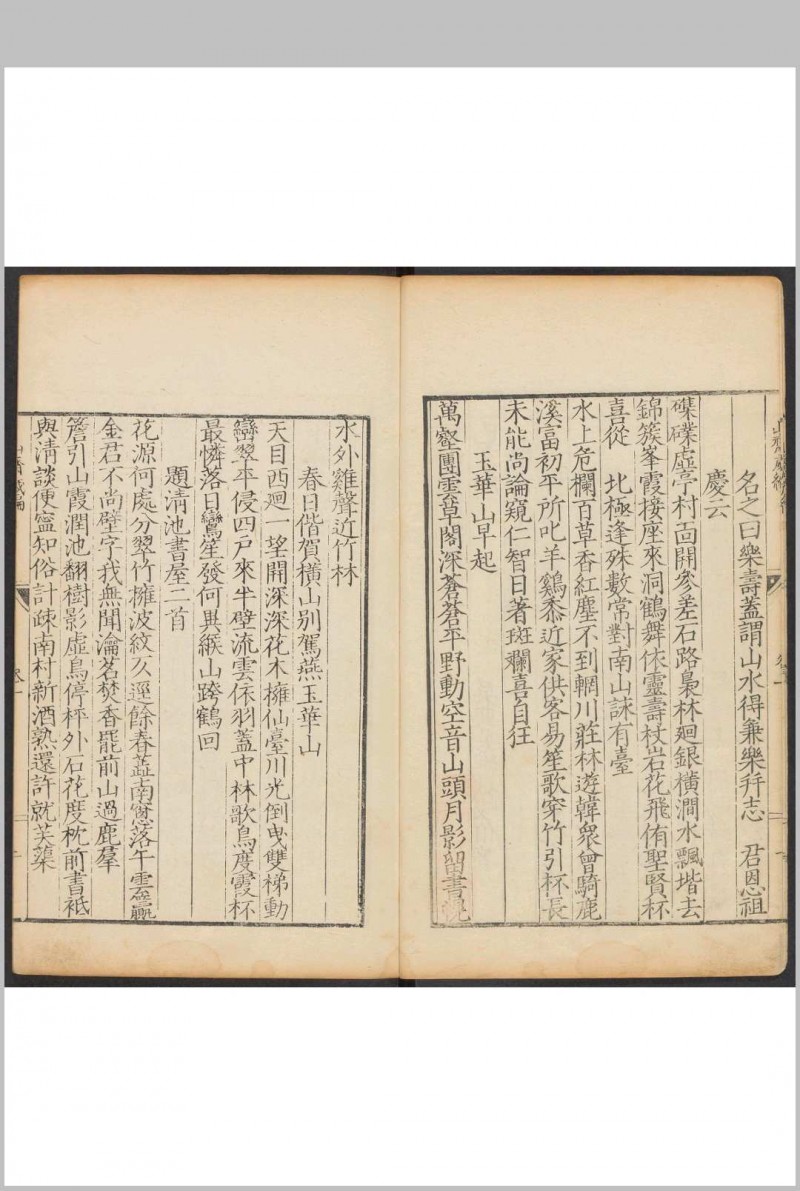 名之曰樂壽蓋謂山水得兼樂幷志　君恩祖
慶云
磥磥虛亭村面開參差石路裊林廻銀橫澗水飄堦去
錦簇峯霞接座來洞鶴舞依靈壽杖岩花飛侑聖賢杯
喜從　北極逢殊數常對南山詠有臺
水上危欄百草香紅塵不到輞川莊林遊韓衆曾騎鹿
溪富初平所叱羊鷄黍近家供客易笙歌穿竹引杯長
未能尚論窺仁智日著斑斕喜自狂
玉華山早起
萬壑團雲草閣深蒼蒼平野動空音山頭月影留書幌
水外雞聲近竹林
春日偕賀橫山別駕燕玉華山
天目西迴一望開深深花木擁仙臺川光倒曳雙梯動
巒翠平侵四戶來半壁流雲依羽蓋中林歌鳥度霞杯
最憐落日鸞笙發何異緱山跨鶴回
題清池書屋二首
花源何處分翠竹擁波紋仄逕餘春藍南窻落午雲籯
金君不尚壁字我無聞瀹茗焚香罷前山過鹿羣
簷引山霞潤池翻樹影虛鳥停枰外石花度枕前書袛
與清談便寧知俗計疎南村新酒熟還許就芙蕖